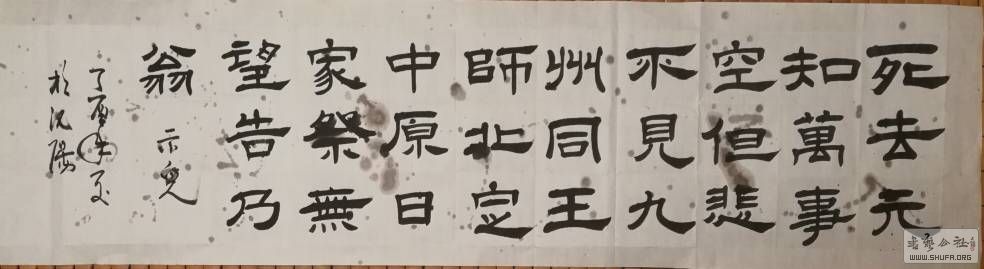 死去元
知萬事
空但悲
不見九
州同王
師北定
中原日
家祭無
望告乃
翁 示兒
丁酉年
於沈陽
書藝公社
WWW.SHUFA.ORG